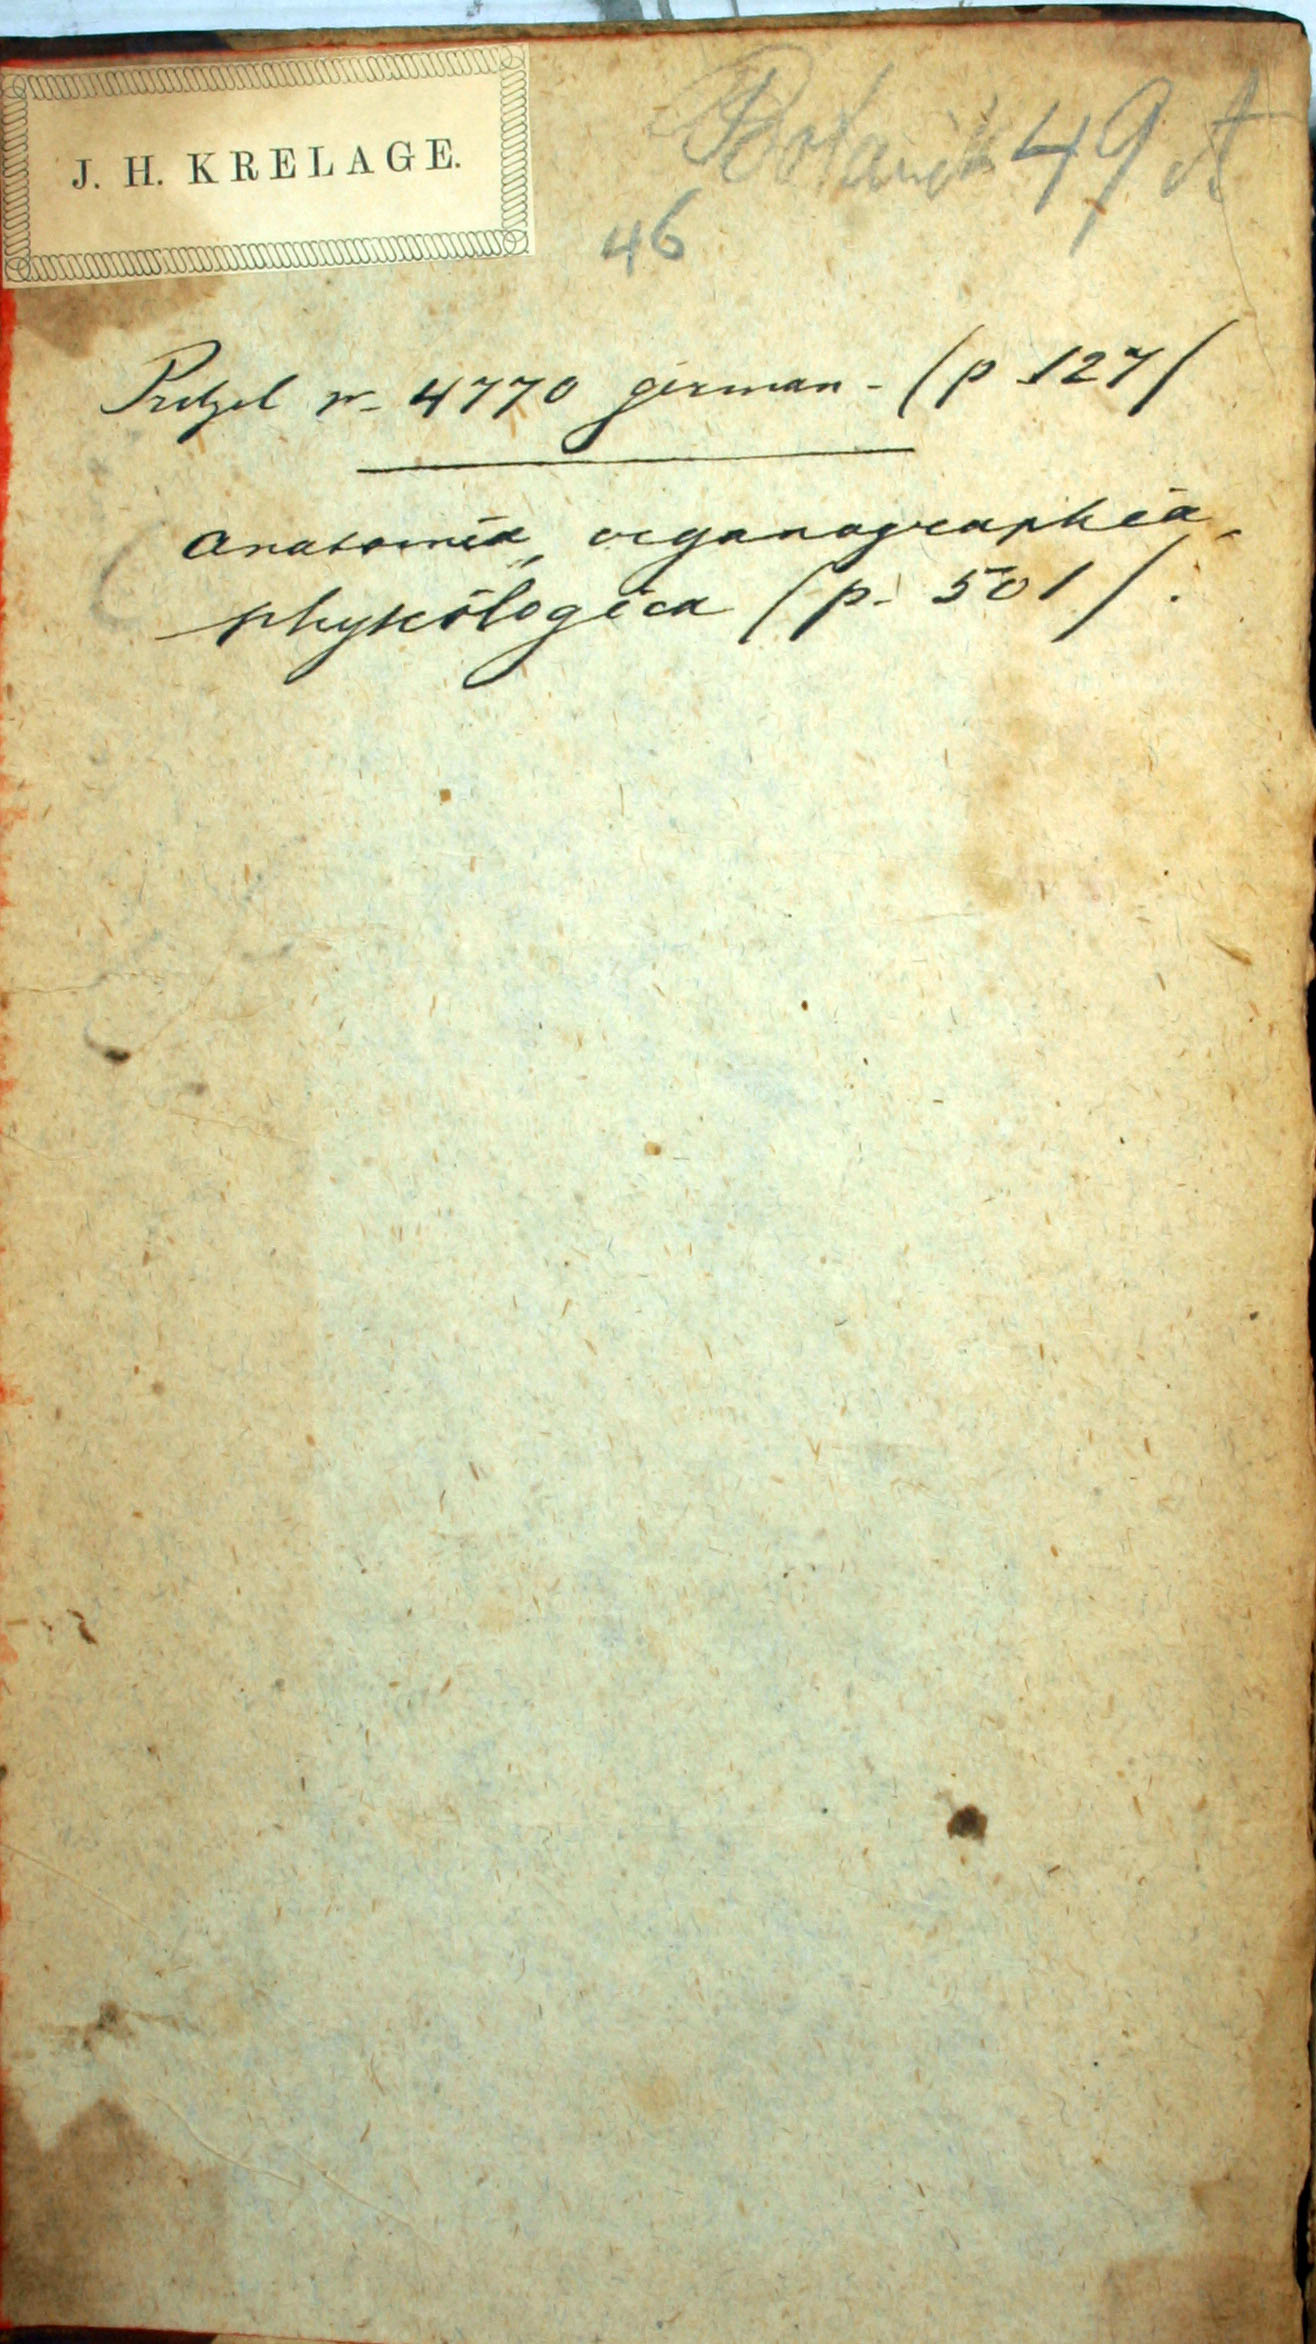 J. H. KRELAGE.
Botanik 49 A
46
Pritzel nr. 4770 german - (p 127)
Anatomia, organographia,
physiologica (p. 501).